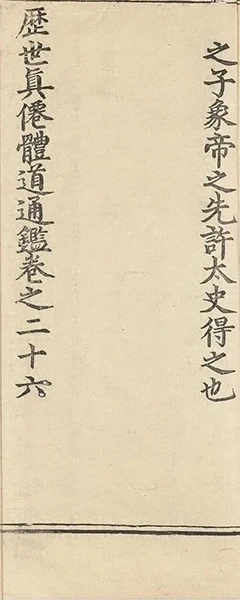 之子象帝之先許太史得之也
歷世真僊體道通鑑卷之二十六